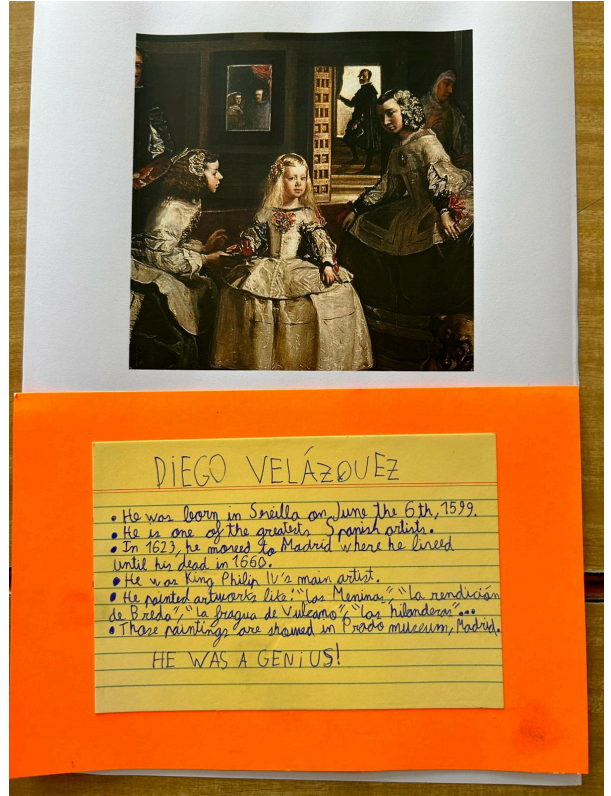 DIEGO VELÁZQUEZ
• He was born in Sevilla on June the 6th, 1599.
• He is one of the greatests Spanish artists.
• In 1623, he moved to Madrid where he lived
until his dead in 1660.
• He was King Philip IV's main artist.
• He painted artworks like: "Las Meninas", "La rendición
de Breda", "la fragua de Vulcano", "Las hilanderas"...
• Those paintings are showed in Prado museum, Madrid.
HE WAS A GENIUS!